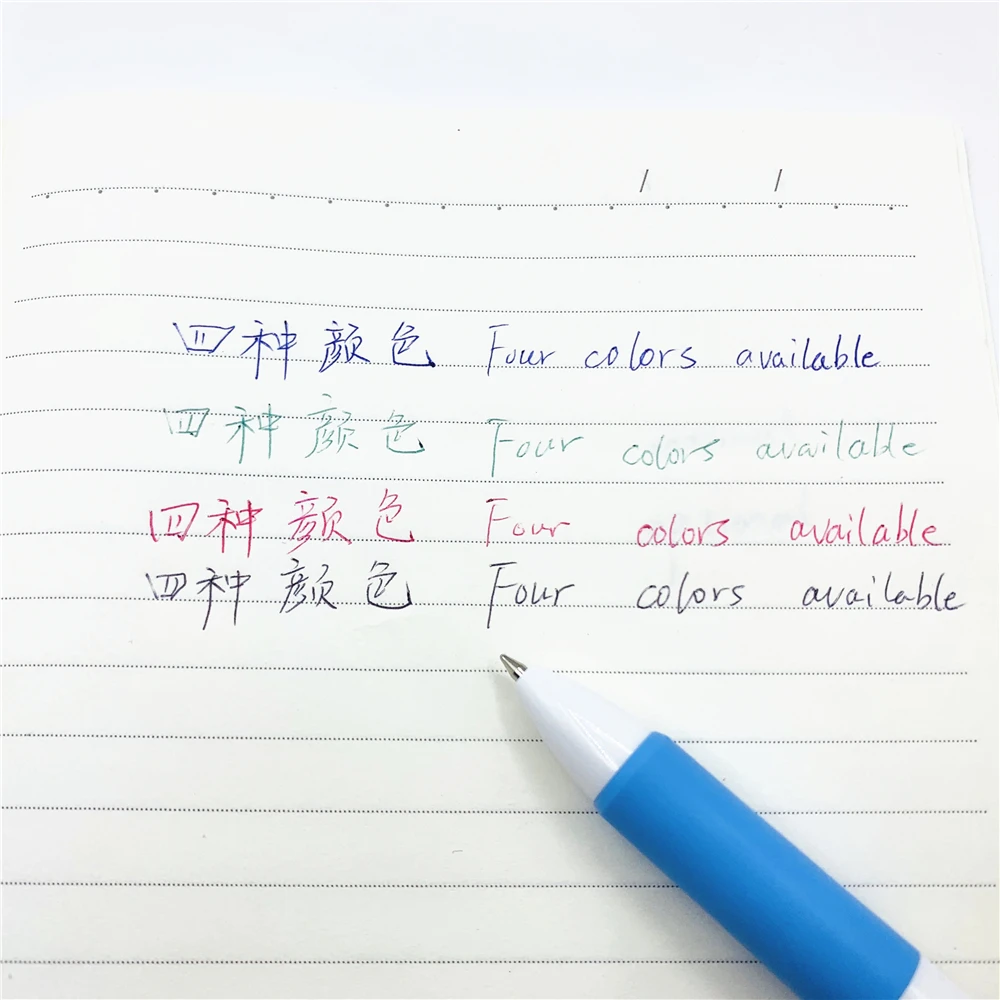 / /
四种颜色 Four colors available
四种颜色 Four colors available
四种颜色 Four colors available
四种颜色 Four colors available